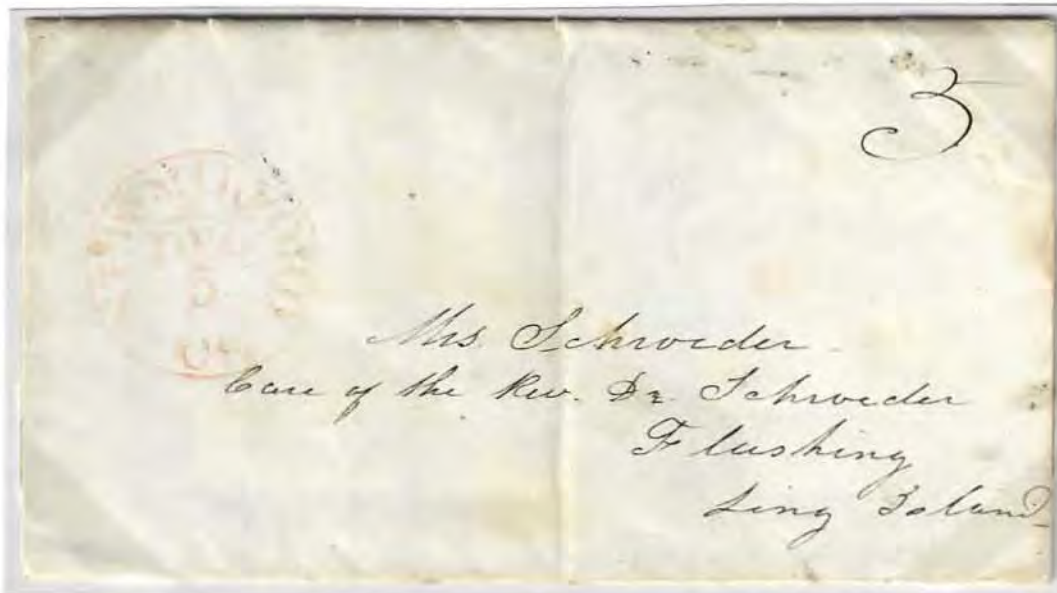 5
Mrs Schroeder
Care of the Rev. Dr Schroeder
Flushing
Long Island